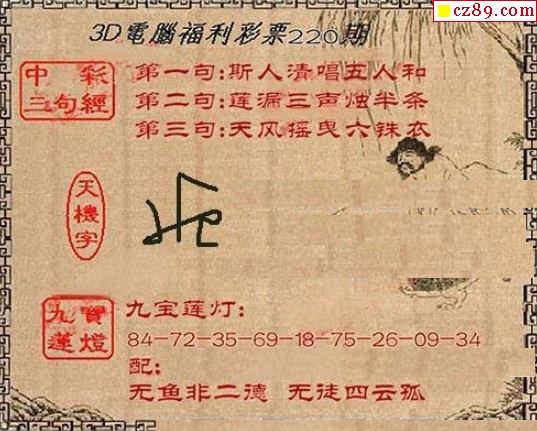 cz89.com
3D電腦福利彩票220期
中彩
三句經
第一句:斯人清唱五人和
第二句:莲漏三声烛半条
第三句:天风摇曳六铢衣
天機字
九寶
蓮燈
九宝莲灯:
84-72-35-69-18-75-26-09-34
配:
无鱼非二德 无徒四云孤